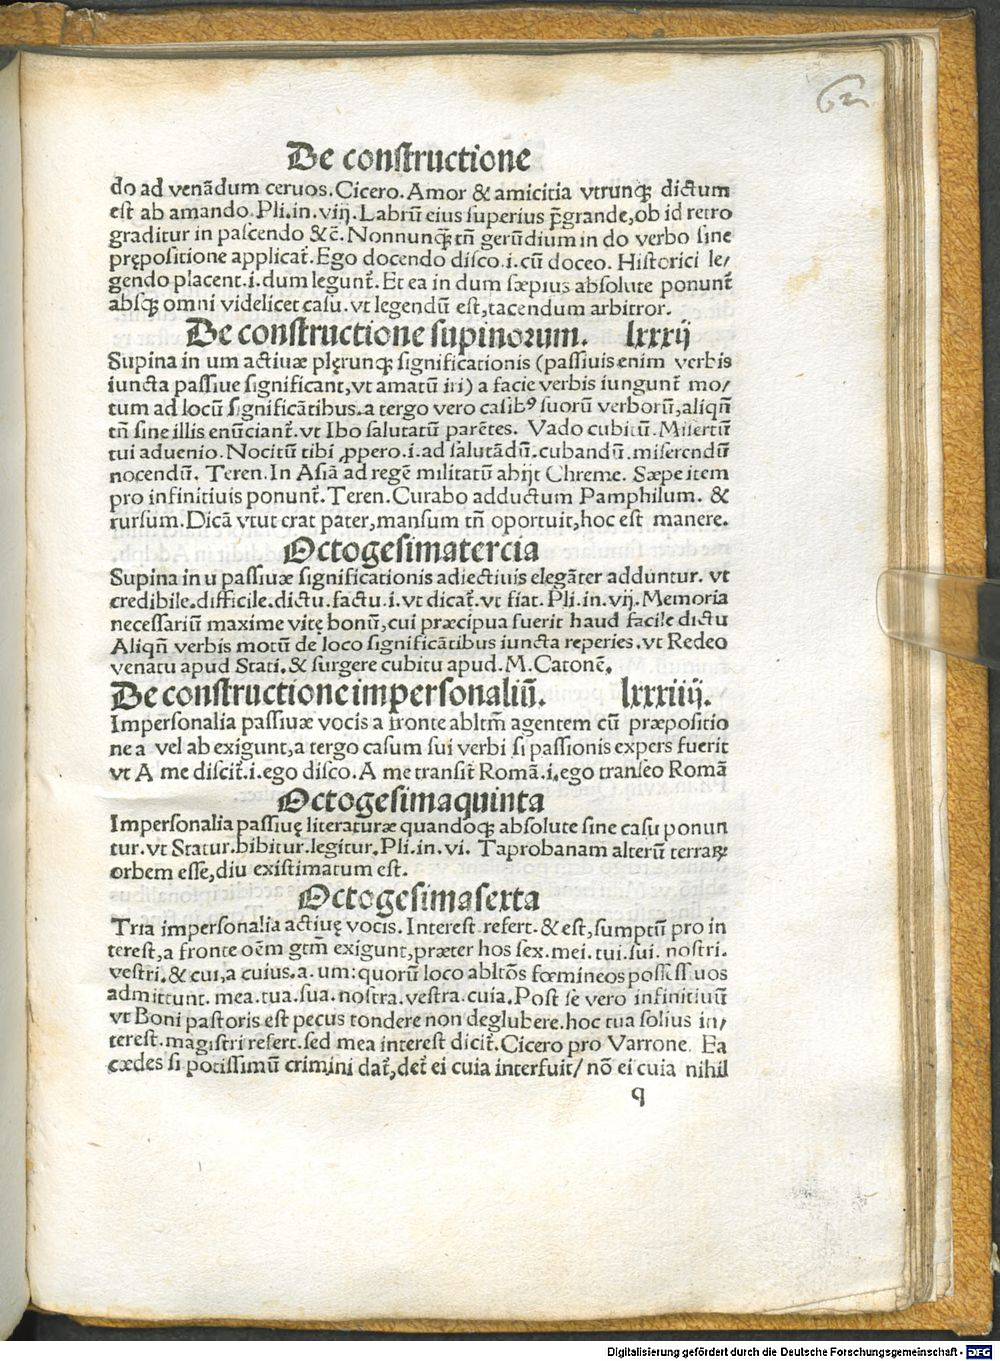 62
De constructione
do ad venādum ceruos. Cicero. Amor & amicitia vtrunqȝ dictum
est ab amando. Pli. in. viij. Labrū eius superius p̄grande, ob id retro
graditur in pascendo &c̄. Nonnunqȝ̄ tn̄ gerūdium in do verbo sine
prępositione applicat̄. Ego docendo disco .i. cū doceo. Historici le/
gendo placent .i. dum legunt̄. Et ea in dum sæpius absolute ponunt̄
absqȝ omni videlicet casu. vt legendū est, tacendum arbitror.
De constructione supinorum. lxxxij
Supina in um actiuæ plęrunqȝ significationis (passiuis enim verbis
iuncta passiue significant, vt amatū iri) a facie verbis iungunt̄ mo/
tum ad locū significātibus. a tergo vero casibꝰ suorū verborū, aliqn̄
tn̄ sine illis enūciant̄. vt Ibo salutatū parētes. Vado cubitū. Misertū
tui aduenio. Nocitū tibi ꝓpero .i. ad salutādū. cubandū. miserendū
nocendū. Teren. In Asiā ad regē militatū abijt Chreme. Sæpe item
pro infinitiuis ponunt̄. Teren. Curabo adductum Pamphilum. &
rursum. Dicā vt vt erat pater, mansum tn̄ oportuit, hoc est manere.
Octogesimatercia
Supina in u passiuæ significationis adiectiuis elegāter adduntur. vt
credibile. difficile. dictu. factu .i. vt dicat̄. vt fiat. Pli. in. vij. Memoria
necessariū maxime vitę bonū, cui præcipua fuerit haud facile dictu
Aliqn̄ verbis motū de loco significātibus iuncta reperies. vt Redeo
venatu apud Stati. & surgere cubitu apud. M. Catonē.
De constructione impersonaliū. lxxxiiij.
Impersonalia passiuæ vocis a fronte abltm̄ agentem cū præpositio
ne a vel ab exigunt, a tergo casum sui verbi si passionis expers fuerit
vt A me discit̄ .i. ego disco. A me transit̄ Romā .i. ego transeo Romā
Octogesimaquinta
Impersonalia passiuę literaturæ quandoqȝ absolute sine casu ponun
tur. vt Statur. bibitur. legitur. Pli. in. vi. Taprobanam alterū terraꝝ
orbem esse, diu existimatum est.
Octogesimasexta
Tria impersonalia actiuę vocis. Interest. refert. & est, sumptū pro in
terest, a fronte oēm gtm̄ exigunt, præter hos sex. mei. tui. sui. nostri.
vestri. & cui, a cuius. a. um: quorū loco abltōs fœmineos possissiuos
admittunt. mea. tua. sua. nostra. vestra. cuia. Post se vero infinitiuū
vt Boni pastoris est pecus tondere non deglubere. hoc tua solius in/
terest. magistri refert. sed mea interest dicit̄. Cicero pro Varrone. Ea
cædes si potissimū crimini dat̄, det̄ ei cuia interfuit/ nō ei cuia nihil
q
Digitalisierung gefördert durch die Deutsche Forschungsgemeinschaft - DFG